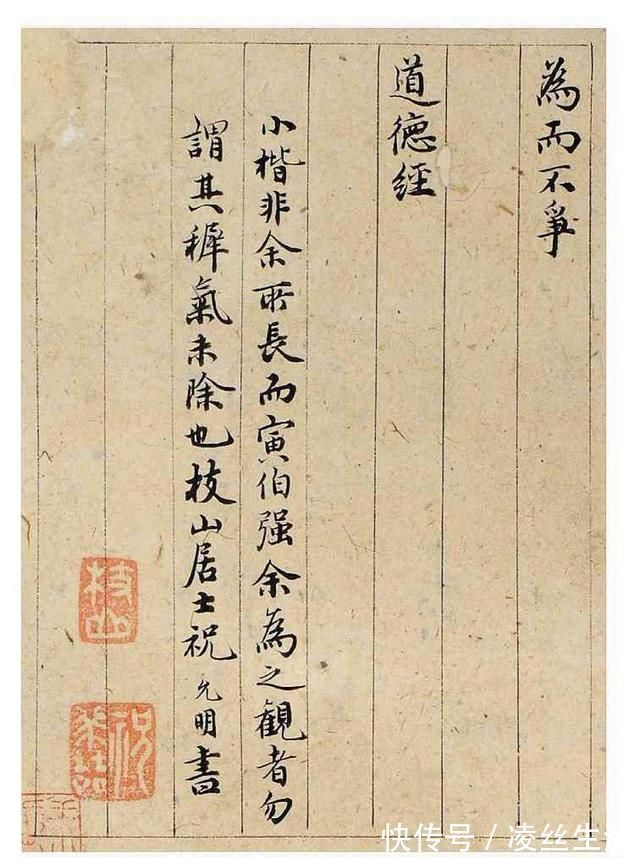 為而不爭
道德經
小楷非余所長而寅伯强余為之觀者勿
謂其穉氣未除也枝山居士祝允明書
枝山
快传号／凌丝生